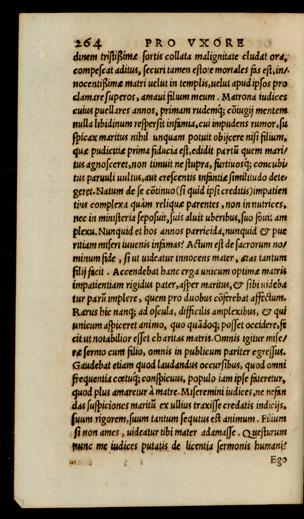 264 PRO VXORE
dinem tristißimæ sortis collata malignitate cludat ora,
compescat aditus, securi tamen estote mortales fas est, in/
nocentißimæ matri uelut in templis, uelut apud ipsos pro
clamare superos, amaui filium meum. Matrona iudices
cuius puellares annos, primam rudemq; cõiugij mentem
nulla libidinum respersit infamia, cui impudens rumor, su
spicax maritus nihil unquam potuit obijcere nisi filium,
quæ pudicitiæ prima fiducia est, edidit partũ quem mari/
tus agnosceret, non timuit ne stupra, furtiuosq; concubi
tus paruuli uultus, aut crescentis infantiæ similitudo dete/
geret. Natum de se cõtinuo (si quid ipsi creditis) impatien
tius complexa quàm reliquæ parentes, non in nutrices,
nec in ministeria seposuit, suis aluit uberibus, suo fouit am
plexu. Nunquid et hos annos parricida, nunquid & pue
ritiam misseri iuuenis infamas? Actum est de sacrorum no/
minum fide, si ut uideatur innocens mater, ætas tantum
filij facit. Accendebat hanc erga unicum optimæ matris
impatientiam rigidus pater, asper maritus, & sibi uideba
tur partũ implere, quem pro duobus cõferebat affectum.
Rarus hic nanq; ad oscula, difficilis amplexibus, & qui
unicum aspiceret animo, quo quãdoq; posset occidere, fe
cit ut notabilior esset charitas matris. Omnis igitur mise/
ræ sermo cum filio, omnis in publicum pariter egressus.
Gaudebat etiam quod laudandus occursibus, quod omni
frequentia cœtuq; conspicuus, populo iam ipse fateretur,
quod plus amaretur à matre. Miseremini iudices, ne nefan
das suspiciones maritũ ex ullius traxisse credatis indicijs,
suum rigorem, suum tantum secutus est animum. Filium
si non ames, uideatur tibi mater adamasse. Questurum
nunc me iudices putatis de licentia sermonis humani?
Ego